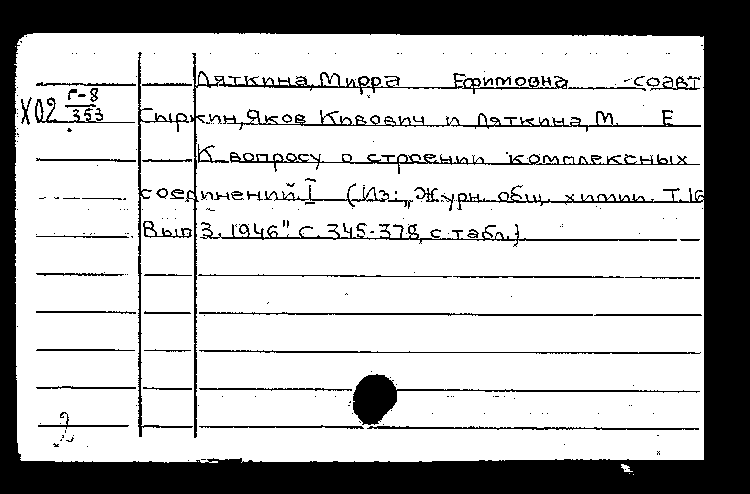 Дяткина, Мирра Ефимовна - соавт
Х02 Г-8/353
Сыркин, Яков Кивович и Дяткина, М. Е
К вопросу о строении комплексных
соединений. I (Из: „Журн. общ. химии. Т. 16
Вып 3. 1946" С. 345-378, с табл.)
2